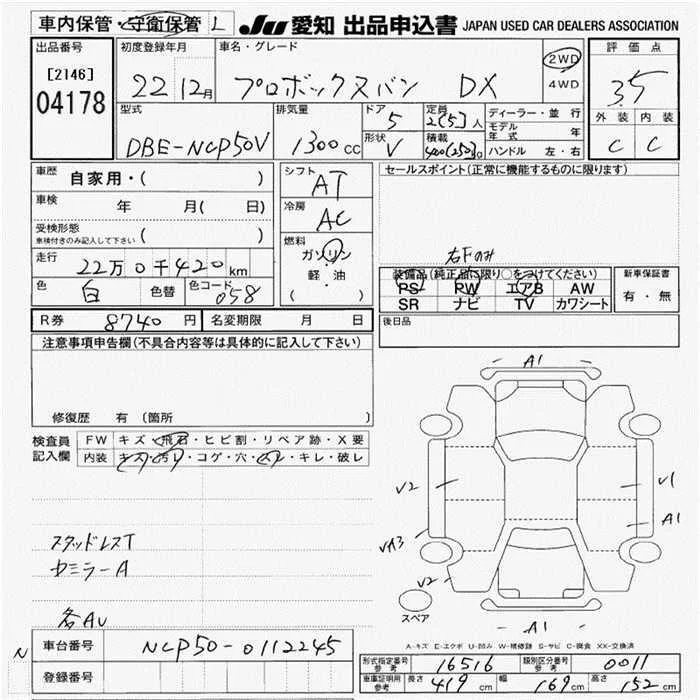 車内保管・守衛保管 L
JU 愛知 出品申込書 JAPAN USED CAR DEALERS ASSOCIATION
出品番号 初度登録年月 車名・グレード 評価点
[2146] 22 12月 プロボックスバン DX 2WD 3.5
04178 4WD
型式 排気量 ドア 5 定員 2(5)人 ディーラー・並行 外装 内装
DBE-NCP50V 1300 CC 形状 V 積載 400(250)kg モデル年式 年 C C
ハンドル 左・右
車歴 自家用・( ) シフト AT セールスポイント(正常に機能するものに限ります)
車検 年 月( 日) 冷房 AC
受検形態 ( )
車検付きのみ記入して下さい
燃料 ガソリン 右Fのみ
走行 22万0千420km 軽・油 装備品(純正品に限り○をつけてください) 新車保証書
色 白 色替 色コード 058 ( ) PS PW エアB AW 有・無
SR ナビ TV カワシート
R券 8740円 名変期限 月 日 後日品
注意事項申告欄(不具合内容等は具体的に記入して下さい)
A1
修復歴 有(箇所
検査員 FW キズ・飛石・ヒビ割・リペア跡・X要
記入欄 内装 キズ・汚レ・コゲ・穴・スレ・キレ・破レ
V2 V1
A1
スタッドレスT VA3
カミラーA V2
各AU スペア
A1
N 車台番号 NCP50-0112245 A-キズ E-エクボ U-凹み W-補修跡 S-サビ C-腐食 XX-交換済
形式指定番号 参考 16516 類別区分番号 参考 0011
登録番号 車庫証明用 参考 長さ 419cm 幅 169cm 高さ 152cm